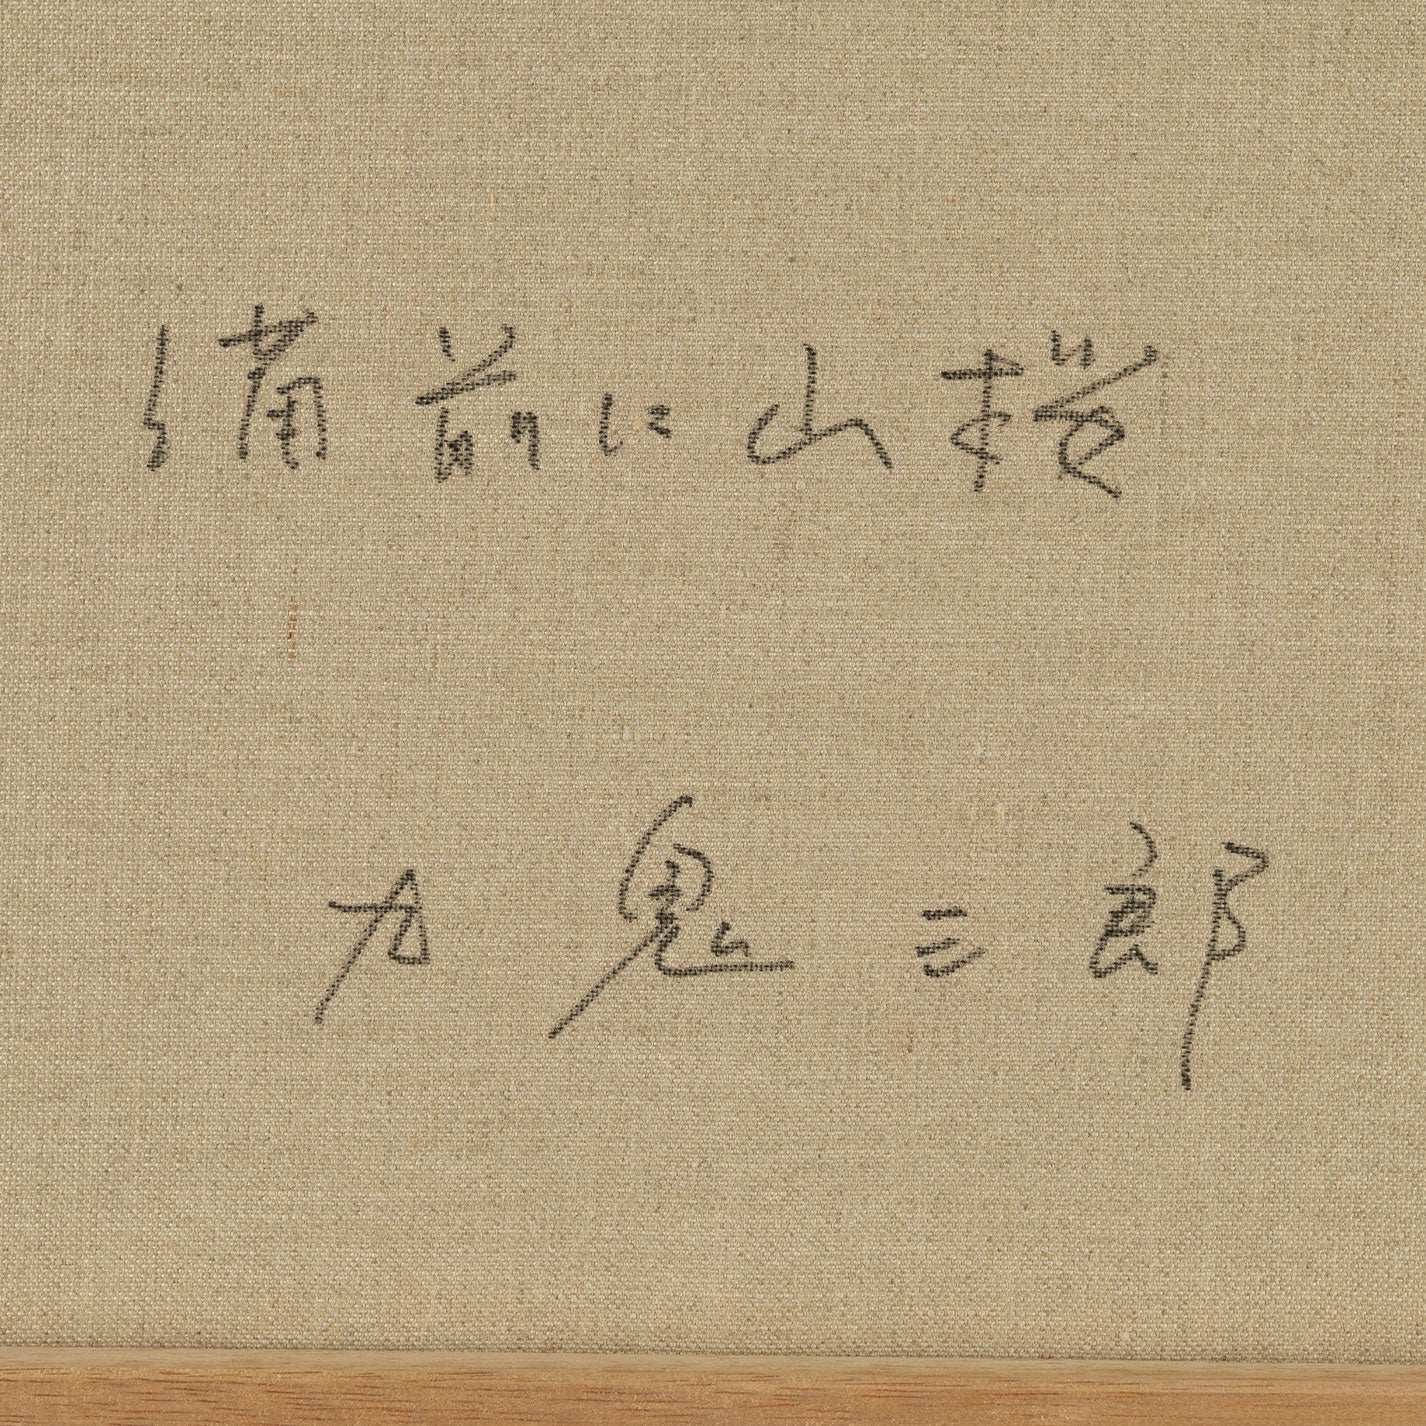 備前に山桜
九鬼三郎